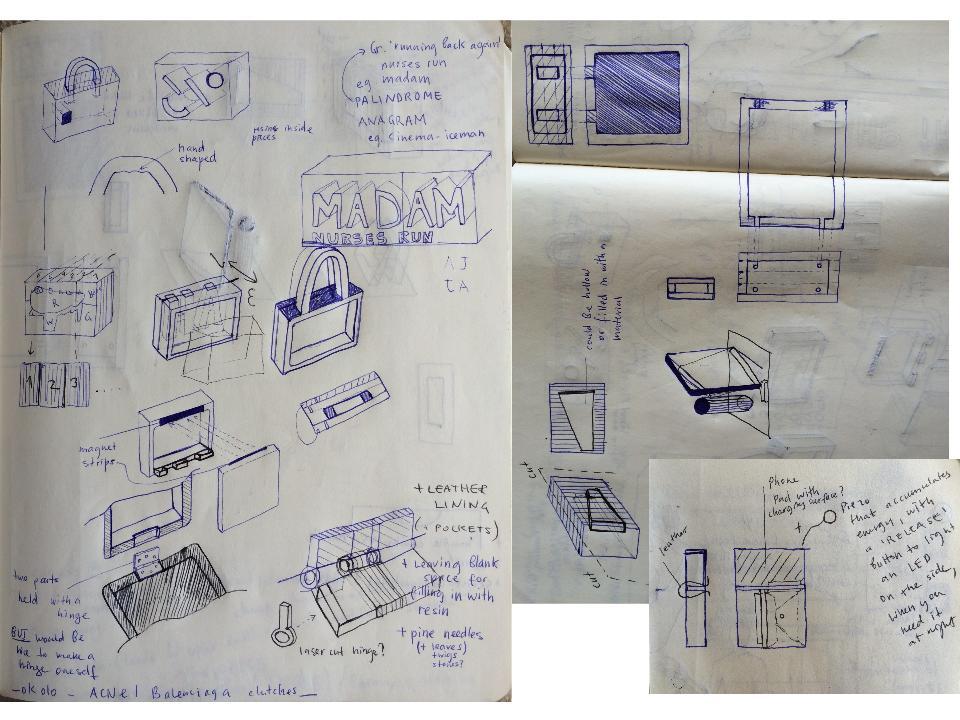 Gr. 'running back again'
nurses run
eg madam
PALINDROME
ANAGRAM
eg. Cinema - iceman
using inside
pieces
hand
shaped
MADAM
NURSES RUN
R
W
G
1 2 3 ....
magnet
strips
+ LEATHER
LINING
(+ POCKETS)
+ Leaving Blank
space for
filling in with
resin
+ pine needles
(+ leaves)
twigs
stones?
two parts
held with a
hinge
BUT would be
nice to make a
hinge oneself
laser cut hinge?
- okolo - ACNE | Balenciaga clutches _
could be hollow
or filled in with a
material
cut
cut
leather
phone
Pad with
charging surface?
+
Piezo
that accumulates
energy, with
a 'RELEASE'
button to light
an LED
on the side,
when you
need it
at night